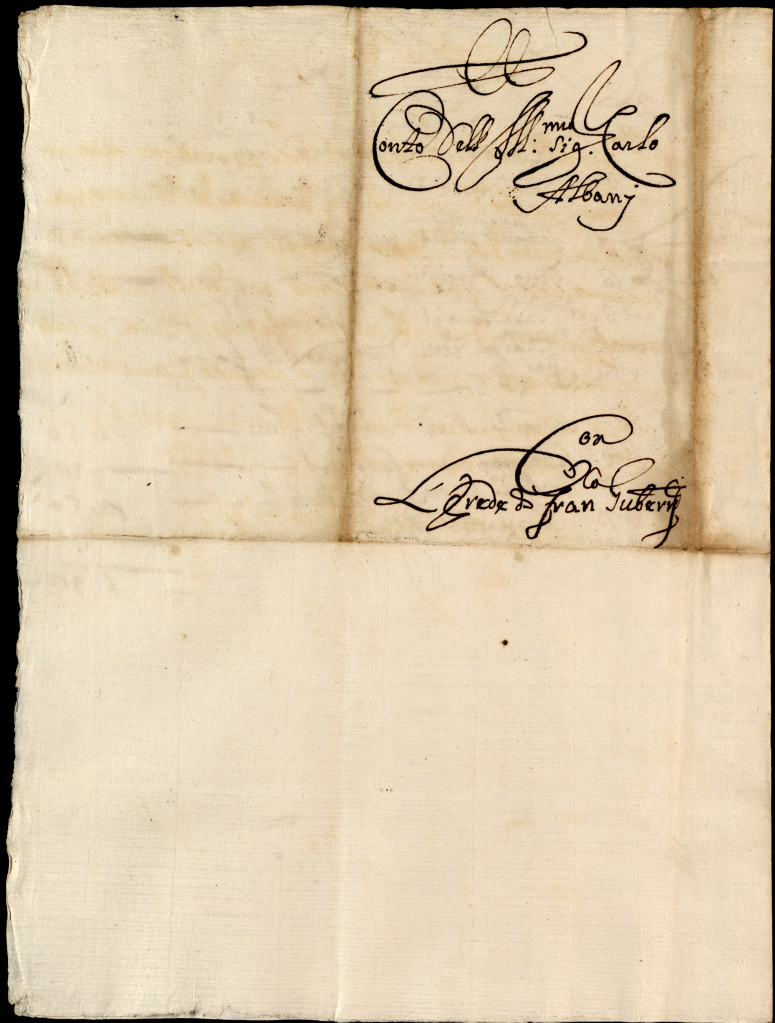 Conto dell Ill:mo Sig. Carlo
Albanj
Con
L'Erede di Fran.co Juberti